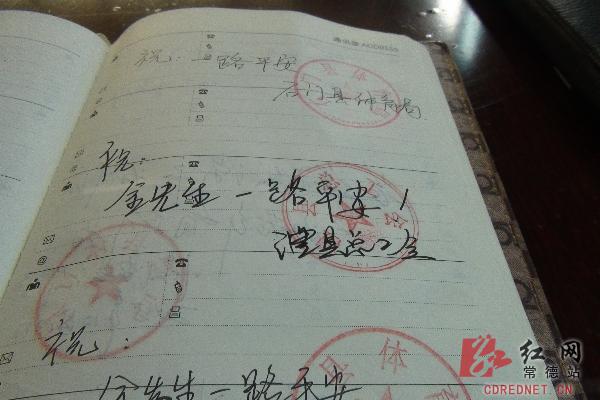 通讯录 ADDRESS
祝：一路平安
石门县体育局
祝：
金先生一路平安！
澧县总工会
祝：
金先生一路平安
体
红网
常德站
CDREDNET.CN